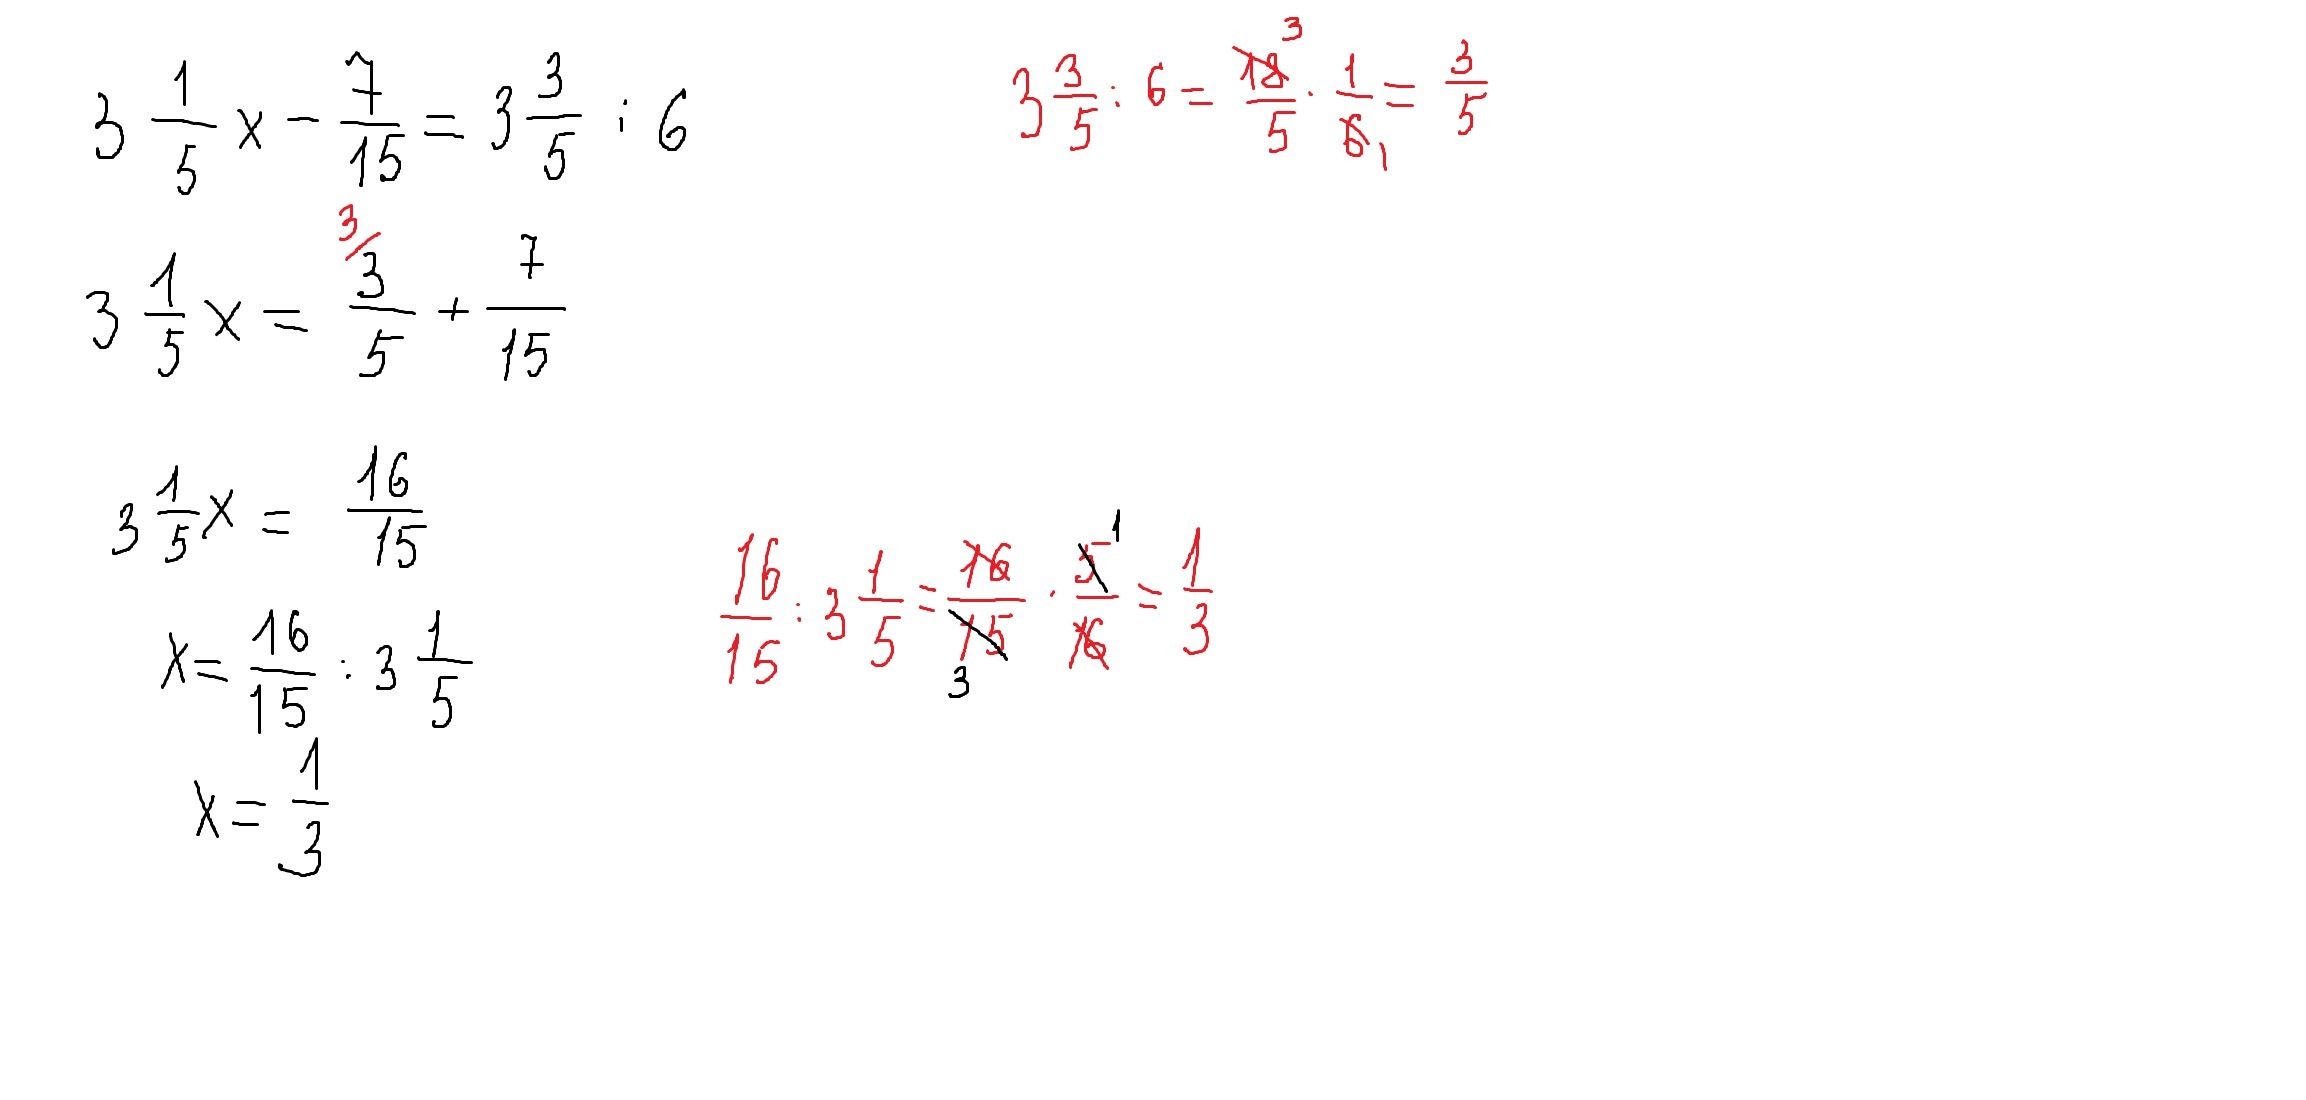 3 1/5 x - 7/15 = 3 3/5 : 6
3 3/5 : 6 = 18/5 3 · 1/6 1 = 3/5
3 1/5 x = 3/ 3/5 + 7/15
3 1/5 x = 16/15
16/15 : 3 1/5 = 16/15 3 · 5/16 1 = 1/3
x = 16/15 : 3 1/5
x = 1/3